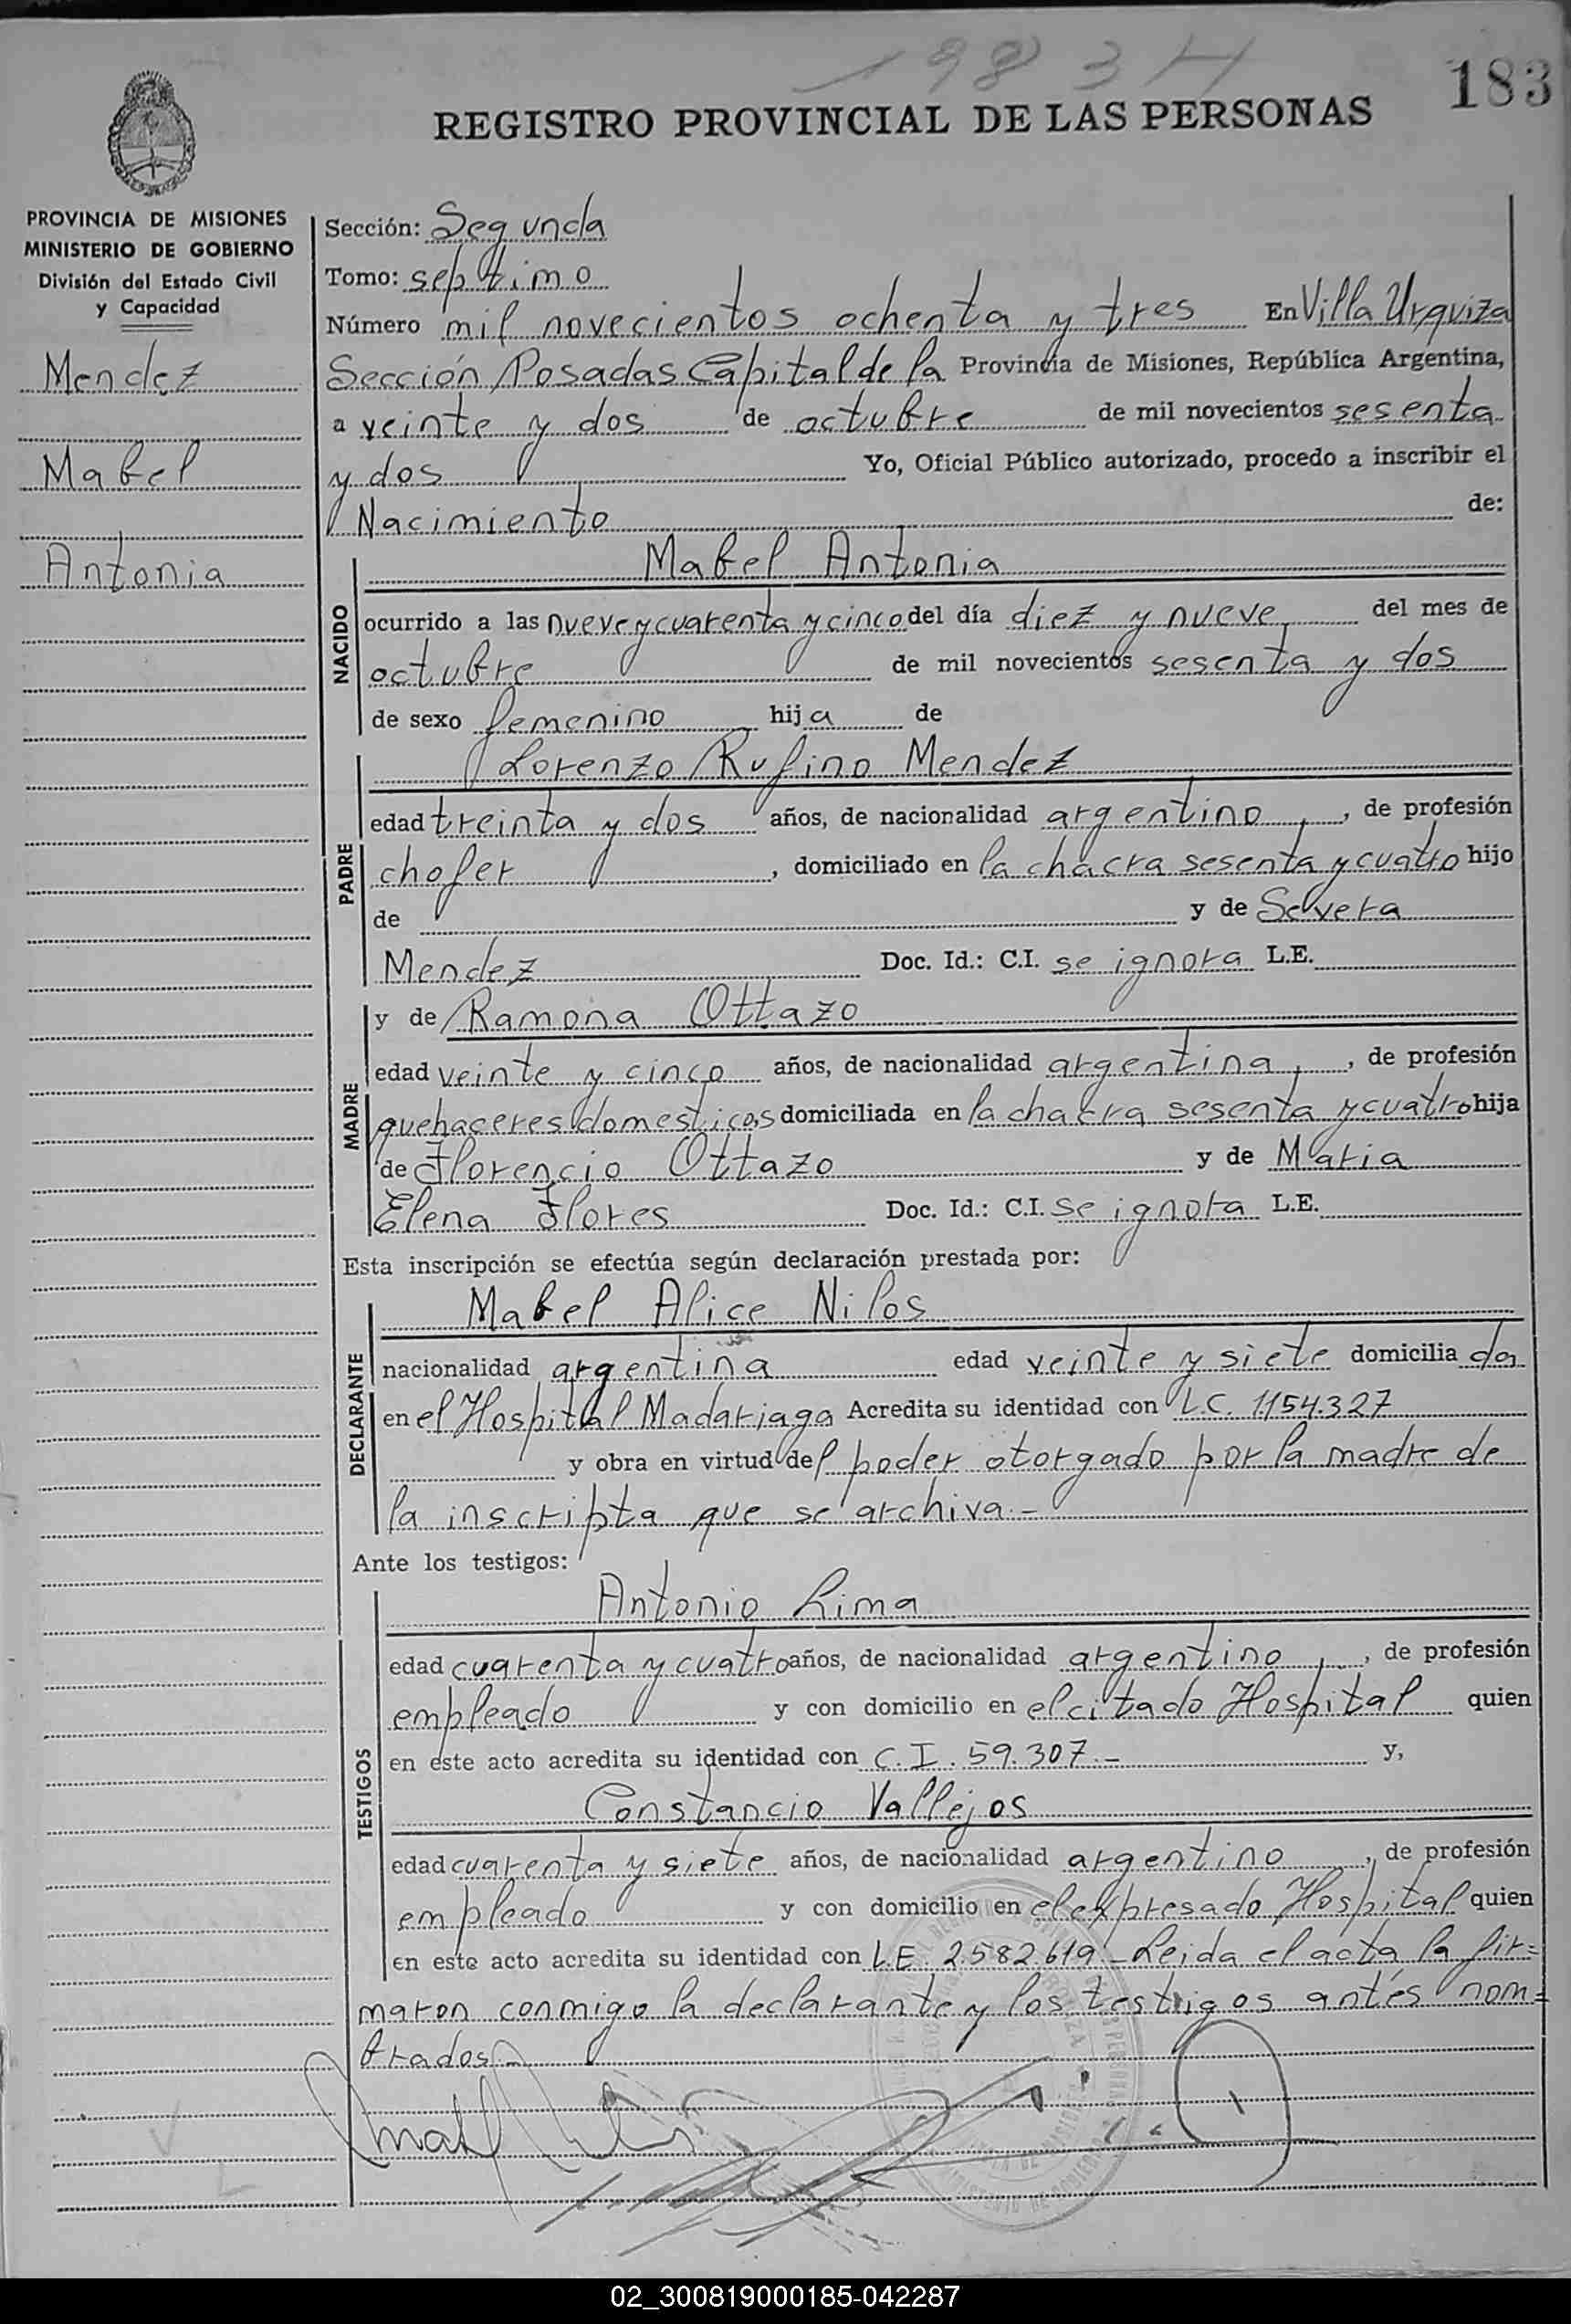 1983 H
183
REGISTRO PROVINCIAL DE LAS PERSONAS
PROVINCIA DE MISIONES
MINISTERIO DE GOBIERNO
División del Estado Civil
y Capacidad
Mendez
Mabel
Antonia
Sección: Segunda
Tomo: septimo
Número mil novecientos ochenta y tres En Villa Urquiza
Sección Posadas Capital de la Provincia de Misiones, República Argentina,
a veinte y dos de octubre de mil novecientos sesenta
y dos Yo, Oficial Público autorizado, procedo a inscribir el
Nacimiento de:
NACIDO
Mabel Antonia
ocurrido a las nueve y cuarenta y cinco del día diez y nueve del mes de
octubre de mil novecientos sesenta y dos
de sexo femenino hija de
PADRE
Lorenzo Rufino Mendez
edad treinta y dos años, de nacionalidad argentino, de profesión
chofer, domiciliado en la chacra sesenta y cuatro hijo
de y de Severa
Mendez Doc. Id.: C.I. se ignora L.E.
MADRE
y de Ramona Ottazo
edad veinte y cinco años, de nacionalidad argentina, de profesión
quehaceres domesticos domiciliada en la chacra sesenta y cuatro hija
de Florencio Ottazo y de Maria
Elena Flores Doc. Id.: C.I. se ignora L.E.
Esta inscripción se efectúa según declaración prestada por:
DECLARANTE
Mabel Alice Nilos
nacionalidad argentina edad veinte y siete domiciliada
en el Hospital Madariaga Acredita su identidad con L.C. 1154.327
y obra en virtud del poder otorgado por la madre de
la inscripta que se archiva.-
Ante los testigos:
TESTIGOS
Antonio Lima
edad cuarenta y cuatro años, de nacionalidad argentino, de profesión
empleado y con domicilio en el citado Hospital quien
en este acto acredita su identidad con C.I. 59.307.- y,
Constancio Vallejos
edad cuarenta y siete años, de nacionalidad argentino, de profesión
empleado y con domicilio en el expresado Hospital quien
en este acto acredita su identidad con L.E. 2.582.619.- Leida el acta la fir=
maron conmigo la declarante y los testigos antes nom=
brados.-
02_300819000185-042287